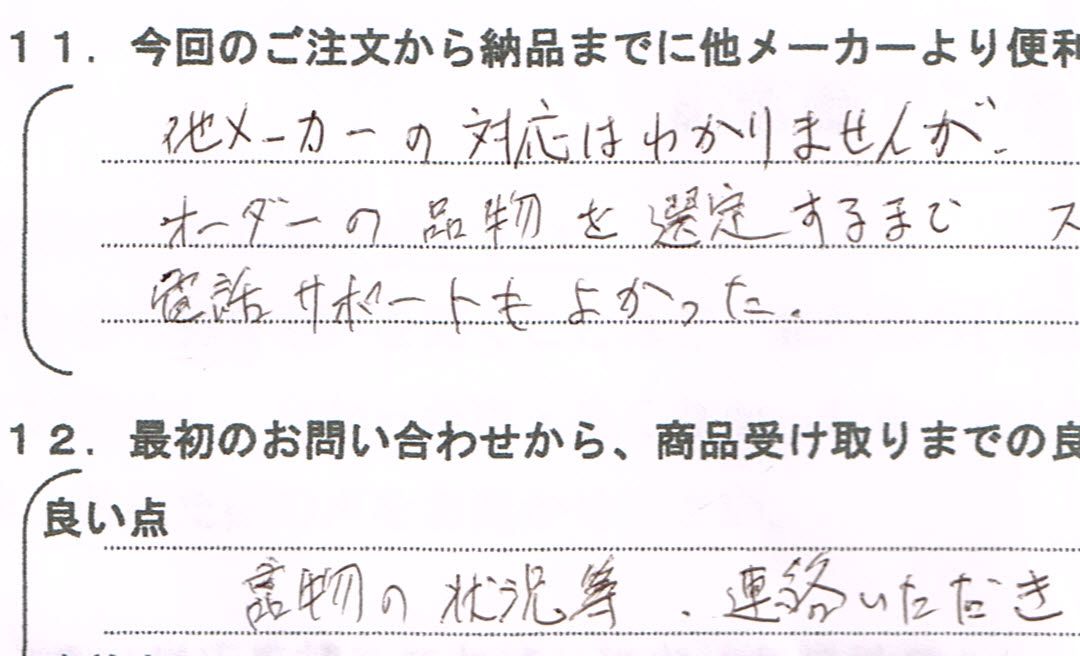 11．今回のご注文から納品までに他メーカーより便利
他メーカーの対応はわかりませんが、
オーダーの品物を選定するまで ス
電話サポートもよかった。
12．最初のお問い合わせから、商品受け取りまでの良
良い点
品物の状況等、連絡いただき